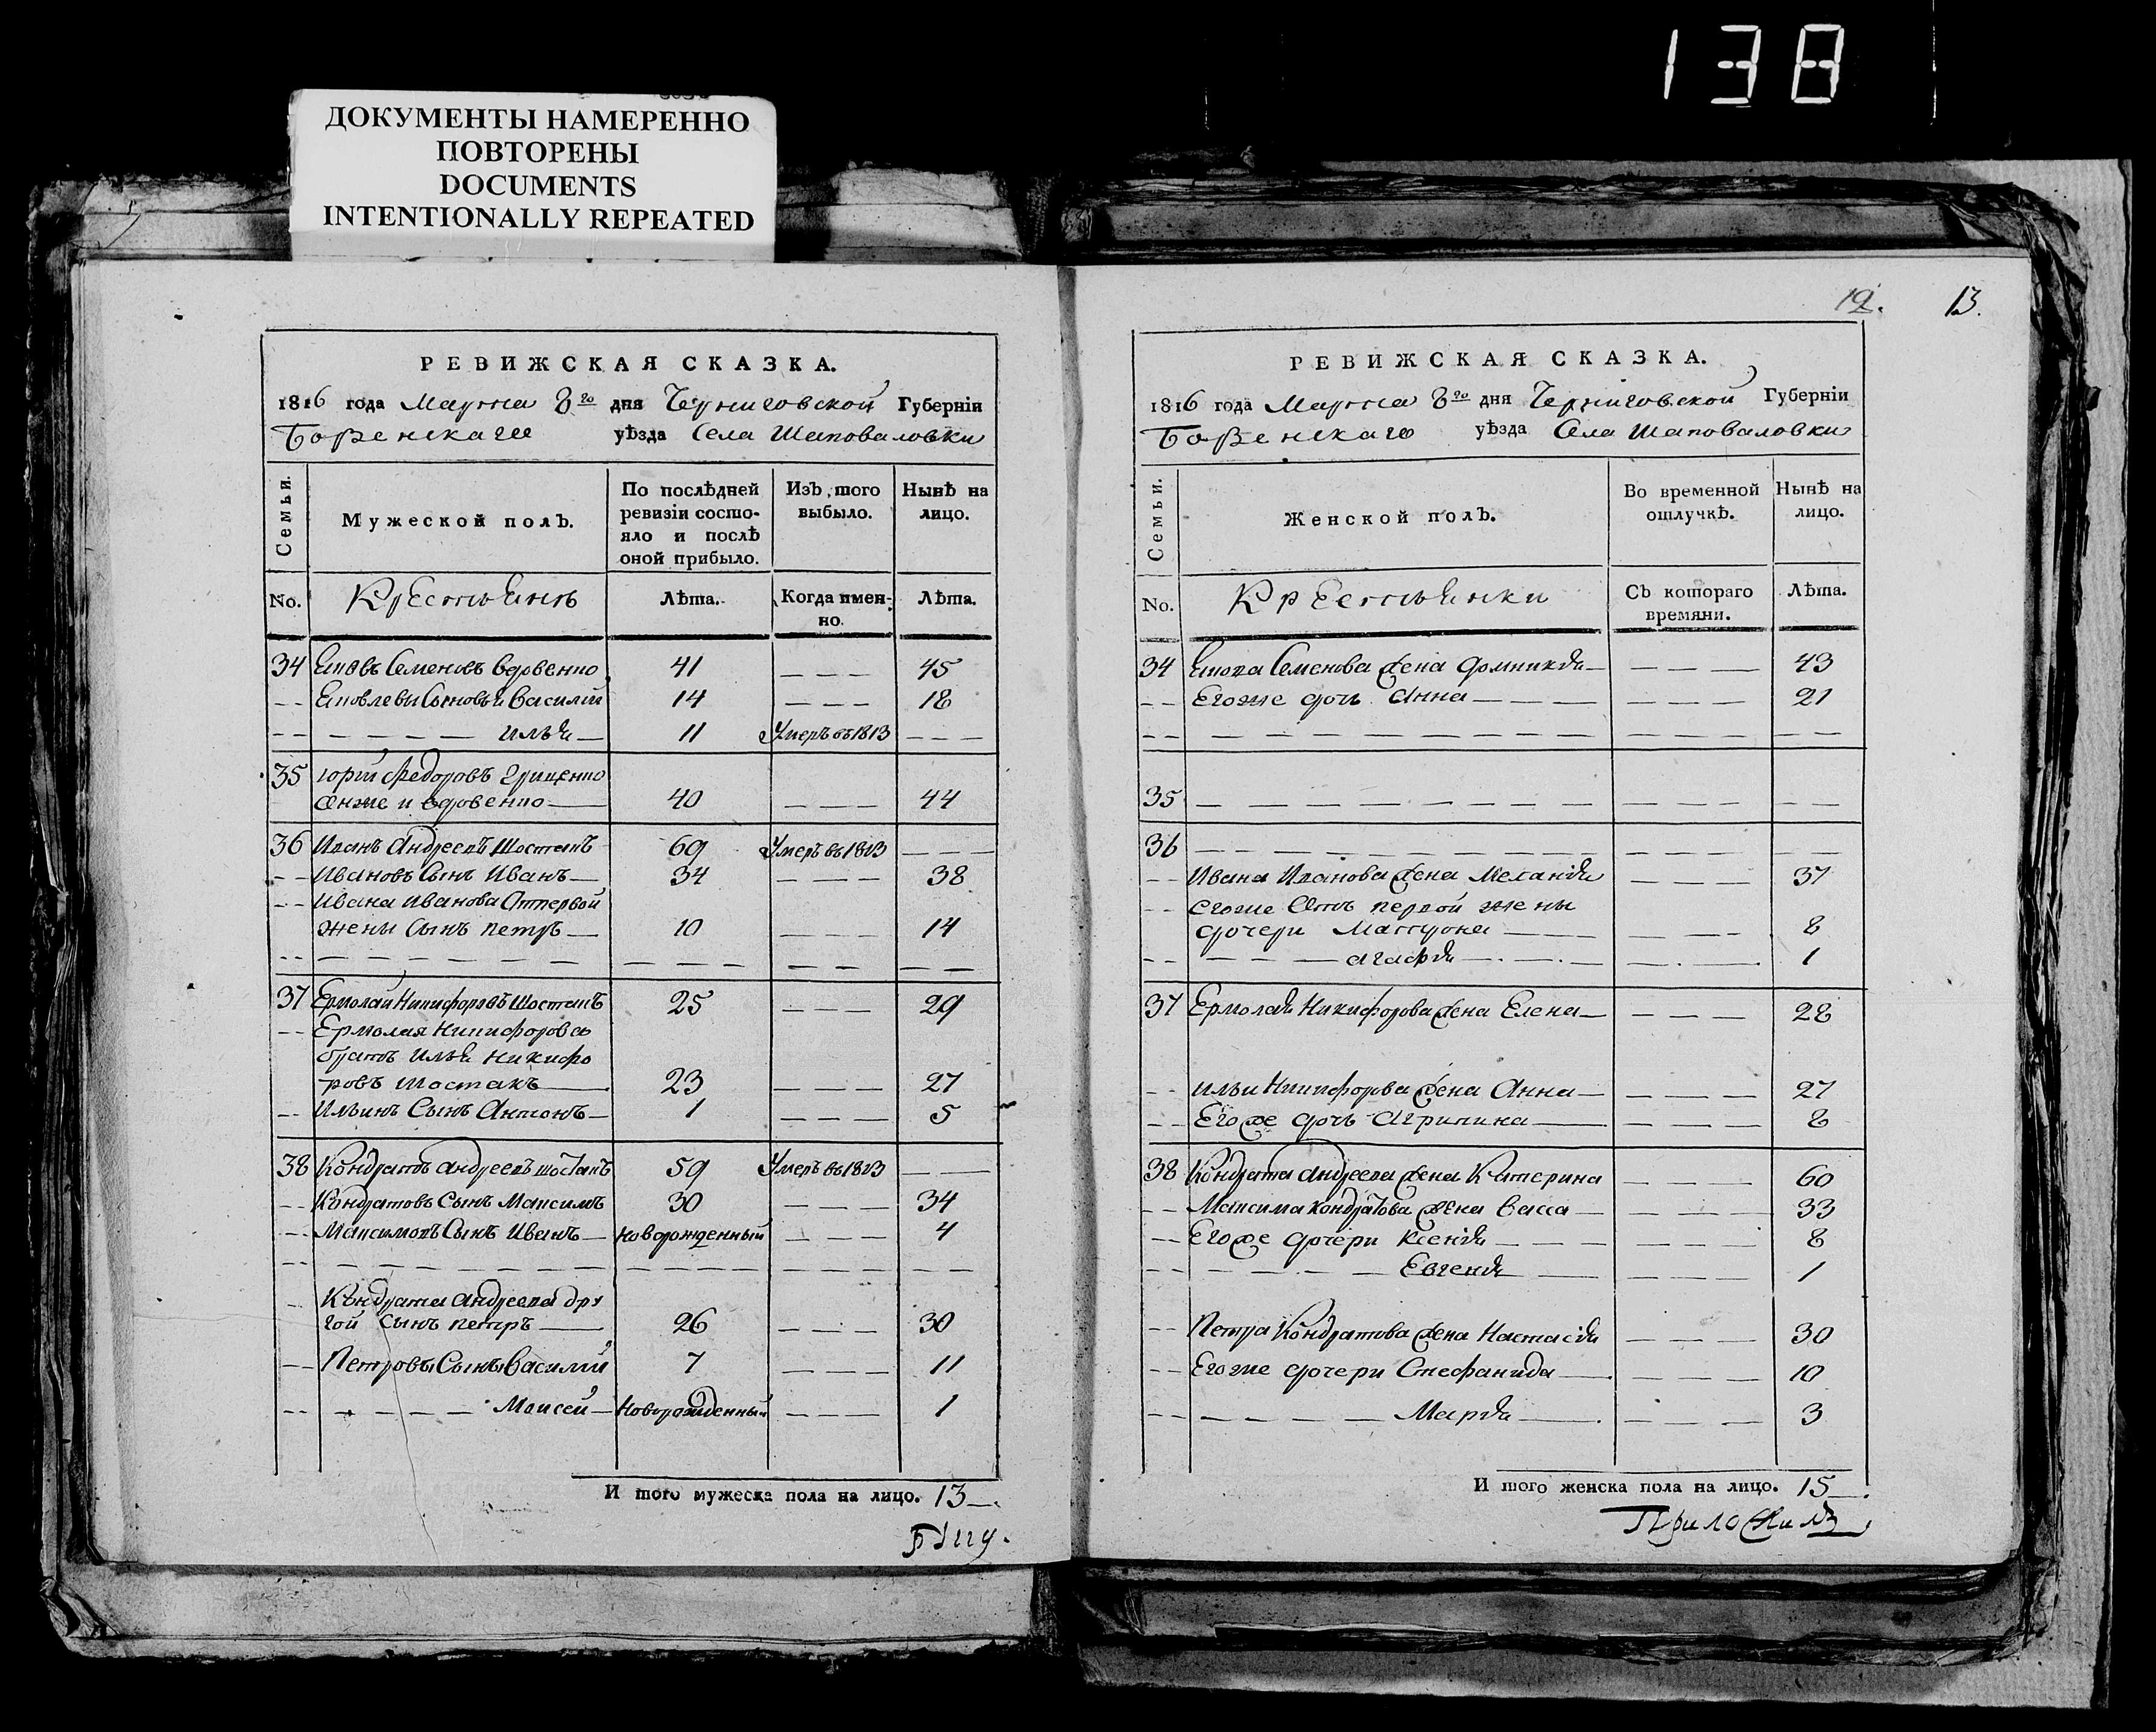 138
ДОКУМЕНТЫ НАМЕРЕННО
ПОВТОРЕНЫ
DOCUMENTS
INTENTIONALLY REPEATED
РЕВИЖСКАЯ СКАЗКА.
1816 года Марта 8го дня Черниговской Губерніи
Борзенскаго уѣзда Села Шаповаловки
Семьи. Мужеской полъ. По послѣдней ревизіи состояло и послѣ оной прибыло. Изъ того выбыло. Нынѣ на лицо.
No. Крестьянъ Лѣта. Когда имен-но. Лѣта.
34 Яковъ Семеновъ Вдовенко 41 — — — 45
-- Яковлевы Сыновья Василій 14 — — — 18
-- — — — — Илья — 11 Умеръ въ 1813 — — —
35 Юрій Федоровъ Грищенко
онже и вдовенко — 40 — — — 44
36 Иванъ Андреевъ Шостакъ 69 Умеръ въ 1813 — — —
-- Ивановъ Сынъ Иванъ — 34 — — — 38
-- Ивана Иванова Отпервой
жены Сынъ Петръ — 10 — — — 14
37 Ермолай Никифоровъ Шостакъ 25 — — — 29
-- Ермолая Никифорова
братъ Илья Никифо
ровъ Шостакъ — 23 — — — 27
-- Ильинъ Сынъ Антонъ — 1 — — — 5
38 Кондратъ Андреевъ Шостакъ 59 Умеръ въ 1813 — —
-- Кондратовъ Сынъ Максимъ 30 — — — 34
-- Максимовъ Сынъ Иванъ — Новорожденный — — — 4
-- Кондрата Андреева дру
гой Сынъ Петръ — 26 — — — 30
-- Петровы Сыны Василій 7 — — — 11
-- — — — — Моисей — Новорожденный — — — 1
И того мужеска пола на лицо. 13 —.
12. 13.
РЕВИЖСКАЯ СКАЗКА.
1816 года Марта 8го дня Черниговской Губерніи
Борзенскаго уѣзда Села Шаповаловки
Семьи. Женской полъ. Во временной отлучкѣ. Нынѣ на лицо.
No. Крестьянки Съ котораго времяни. Лѣта.
34 Якова Семенова жена Домникія — — — — 43
-- Егоже дочь Анна — — — — — — 21
35 — — — — — — — —
36 — — — — — — — —
-- Ивана Иванова жена Меланія — — — 37
-- Егоже Отъ первой жены
дочери Матрона — — — — 8
-- — — — Агафія — — — — 1
37 Ермолая Никифорова жена Елена — — — — 28
-- Ильи Никифорова жена Анна — — — — 27
-- Егоже дочь Агрипина — — — — 8
38 Кондрата Андреева жена Катерина — — — 60
-- Максима Кондратова жена Васса — — — — 33
-- Егоже дочери Ксенія — — — — 8
-- — — — — Евгенія — — — — 1
-- Петра Кондратова жена Настасія — — — 30
-- Егоже дочери Стефанида — — — — 10
-- — — — — Марія — — — — 3
И того женска пола на лицо. 15 —.
Приложилъ